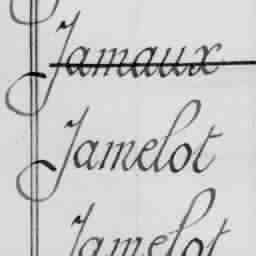 Jamaux
Jamelot
Jamelot